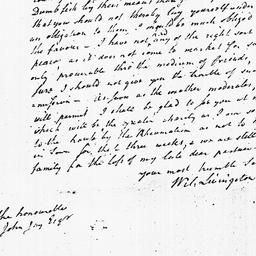 Dumb fish by their means
that you should not thereby lay yourself under
an obligation to them I should be much obliged
the favour – I have not had any of the right sort
peace, as it does not come to market for sale
only procurable thro the medium of friends,
sure I should not give you the trouble of
As soon as the weather moderates,
will permit I shall be glad to see you at
which will be the greater charity as I am so
to the house by the Rheumatism as not to
in Town for these three weeks, & we are still
family for the loss of my late dear partner
your most humble Ser
Wil: Livingston
The honourable
John Jay Esqr